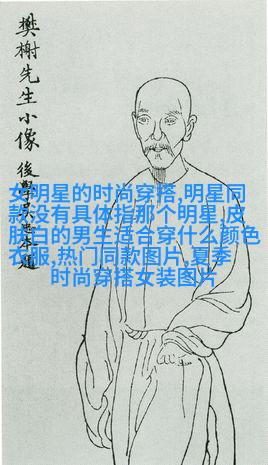 樊榭先生小像
後學吳
女明星的时尚穿搭,明星同
款没有具体指那个明星,皮
肤白的男生适合穿什么颜色
衣服,热门同款图片,夏季
时尚穿搭女装图片